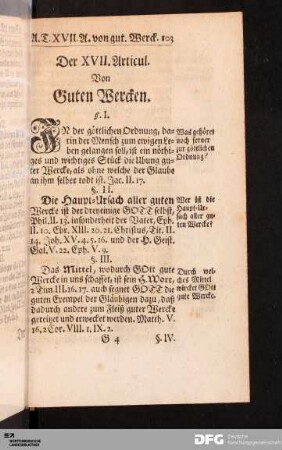 A. T. XVII. A. von gut. Werck. 103
Der XVII. Articul.
Von
Guten Wercken.
§. I.
IN der göttlichen Ordnung, da-
rin der Mensch zum ewigen Le-
ben gelangen soll, ist ein nöthi-
ges und wichtiges Stück die Ubung gu-
ter Wercke, als ohne welche der Glaube
an ihm selber todt ist. Jac. II. 17.
Was gehöret
noch ferner
zur göttlichen
Ordnung?
§. II.
Die Haupt-Ursach aller guten
Wercke ist der dreyeinige GOTT selbst,
Phil. II. 13. insonderheit der Vater, Eph.
II. 10. Ebr. XIII. 20. 21. Christus, Tit. II.
14. Joh. XV. 4. 5. 16. und der H. Geist.
Gal. V. 22. Eph. V. 9.
Wer ist die
Haupt-Ur-
sach aller gu-
ten Wercke?
§. III.
Das Mittel, wodurch GOtt gute
Wercke in uns schaffet, ist sein H. Wort,
2 Tim. III. 16. 17. auch segnet GOTT die
guten Exempel der Gläubigen dazu, daß
dadurch andere zum Fleiß guter Wercke
gereitzet und erwecket werden. Matth. V.
16. 2 Cor. VIII. 1. IX. 2.
Durch wel-
ches Mittel
wircket GOtt
gute Wercke.
G 4 §. IV.
WÜRTTEMBERGISCHE
LANDESBIBLIOTHEK
DFG Deutsche
Forschungsgemeinschaft